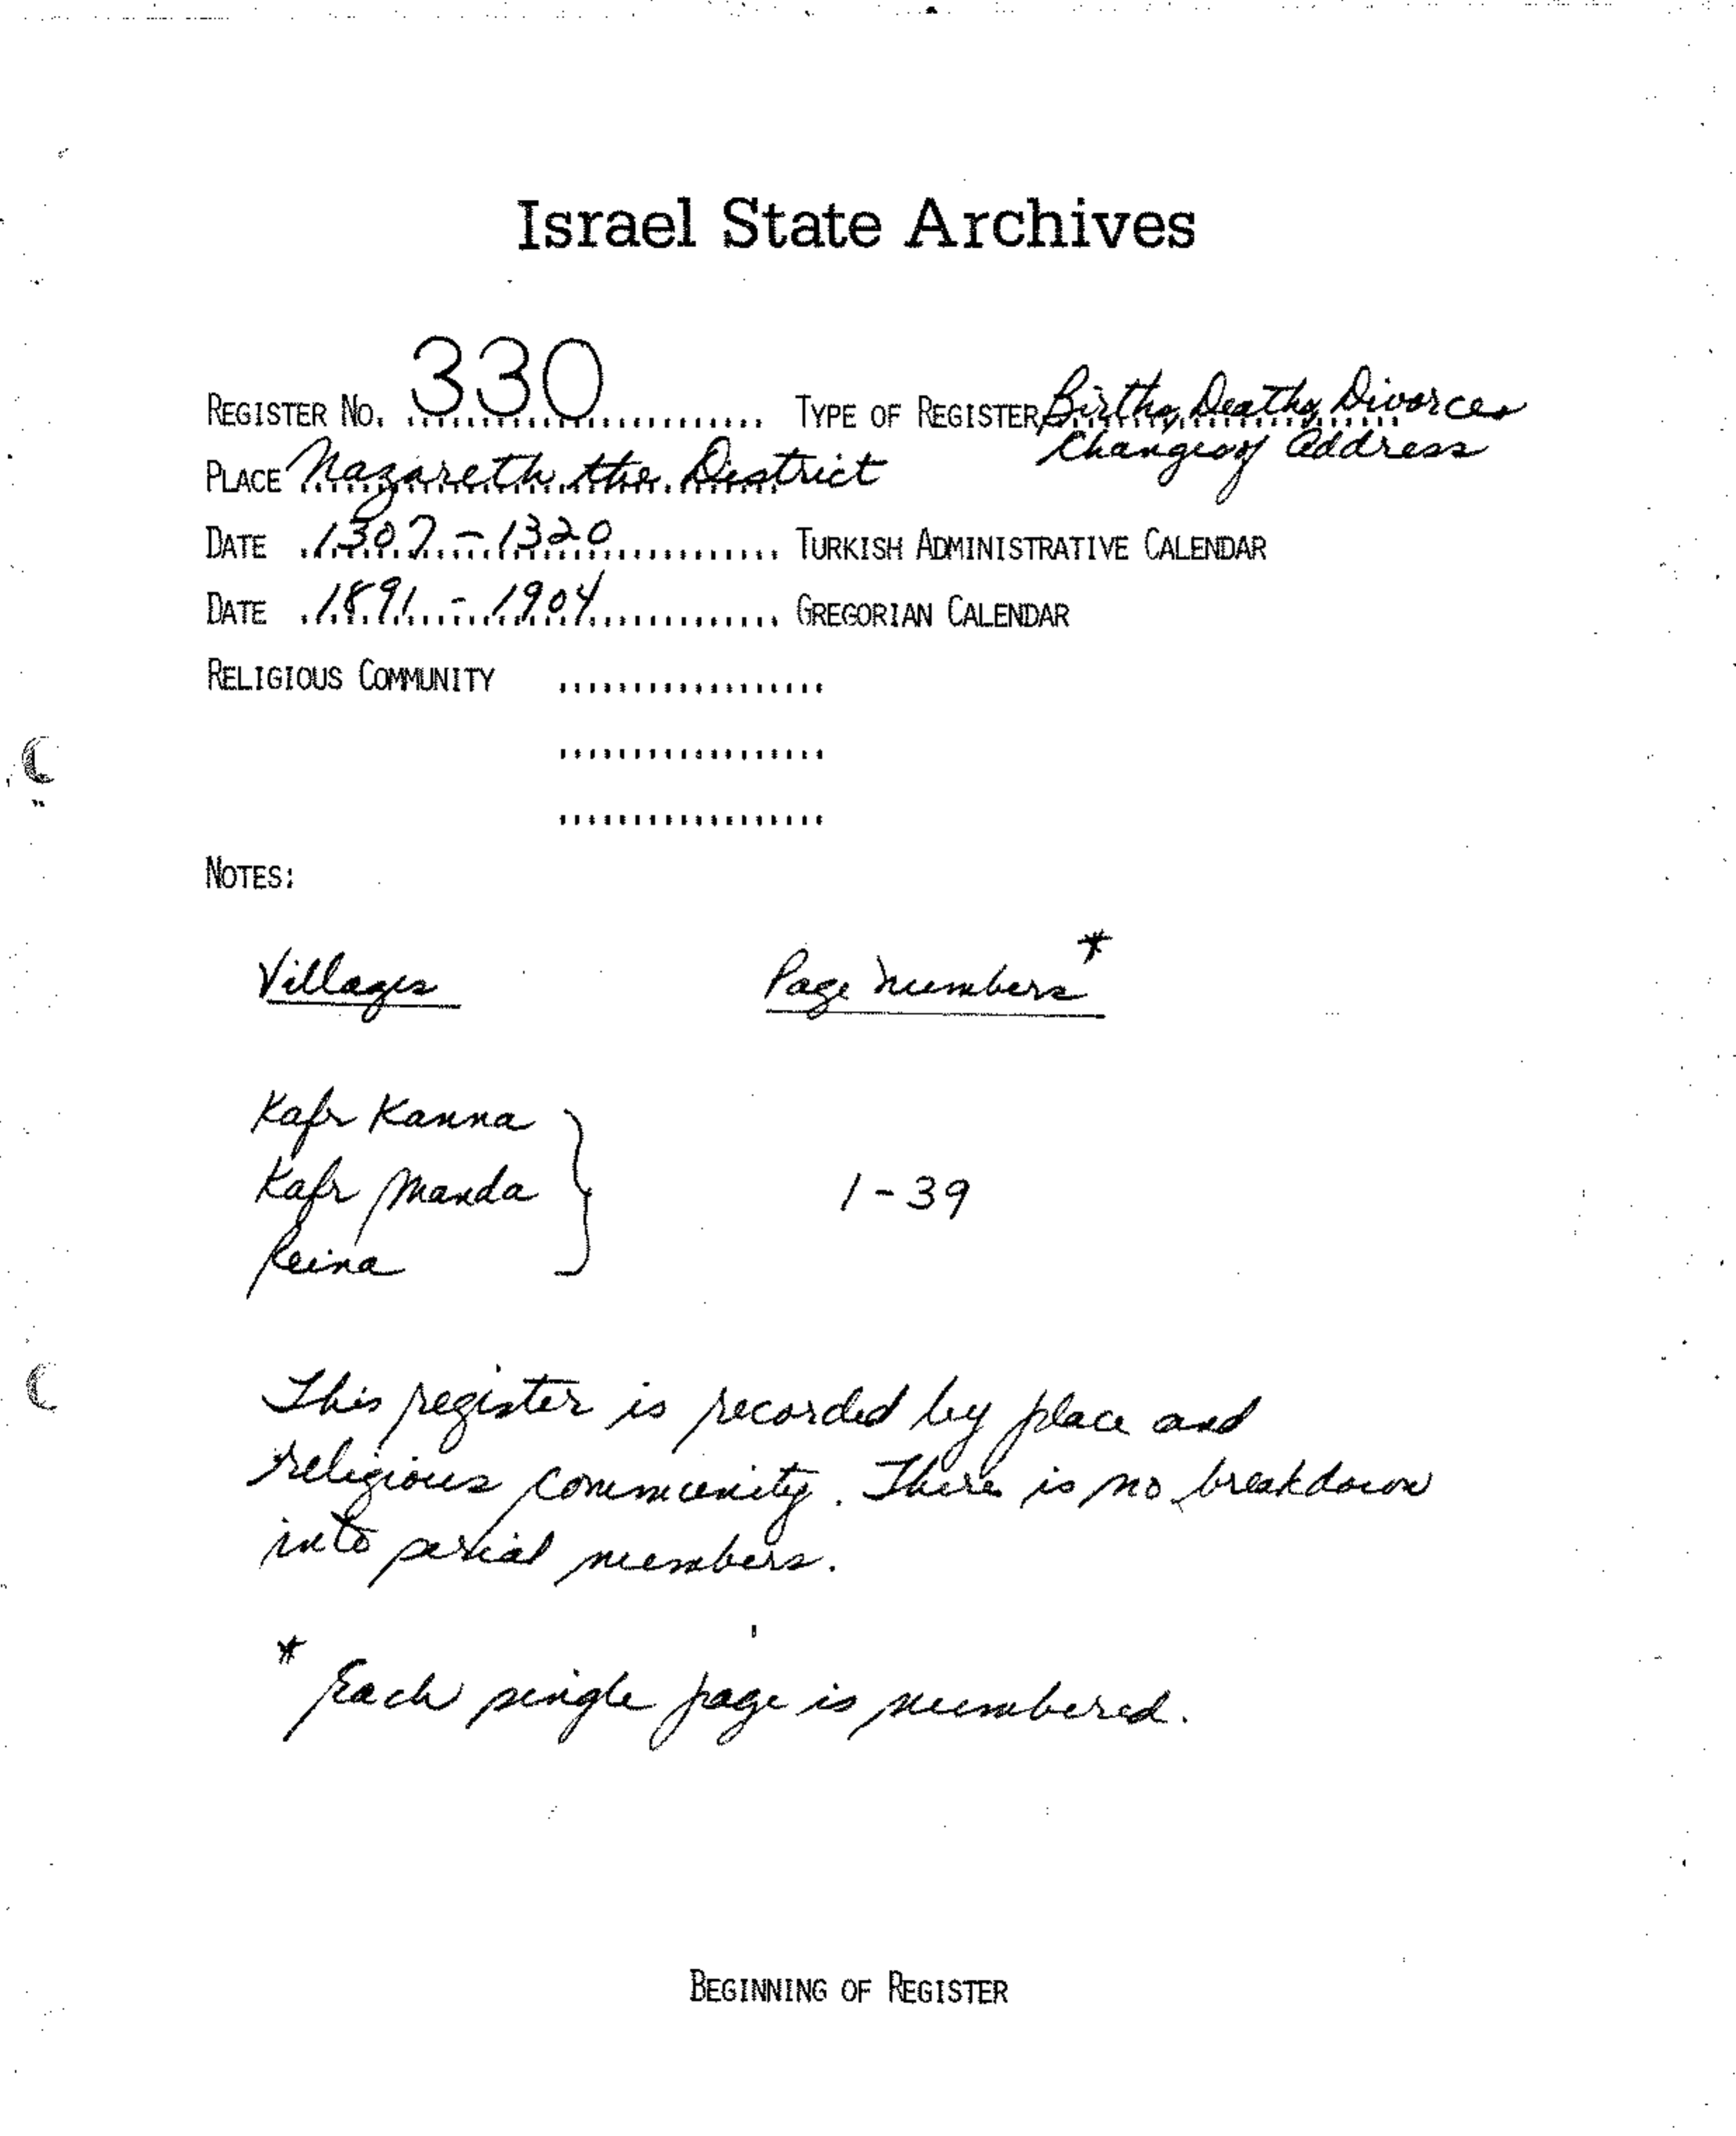 Israel State Archives
REGISTER NO. 330 TYPE OF REGISTER Births, Deaths, Divorces
Changes of Address
PLACE Nazareth the District
DATE 1307 - 1320 TURKISH ADMINISTRATIVE CALENDAR
DATE 1891 - 1904 GREGORIAN CALENDAR
RELIGIOUS COMMUNITY
NOTES:
Villages Page Numbers *
Kafr Kanna
Kafr Manda 1-39
Reina
This register is recorded by place and
religious community. There is no breakdown
into serial numbers.
* Each single page is numbered.
BEGINNING OF REGISTER